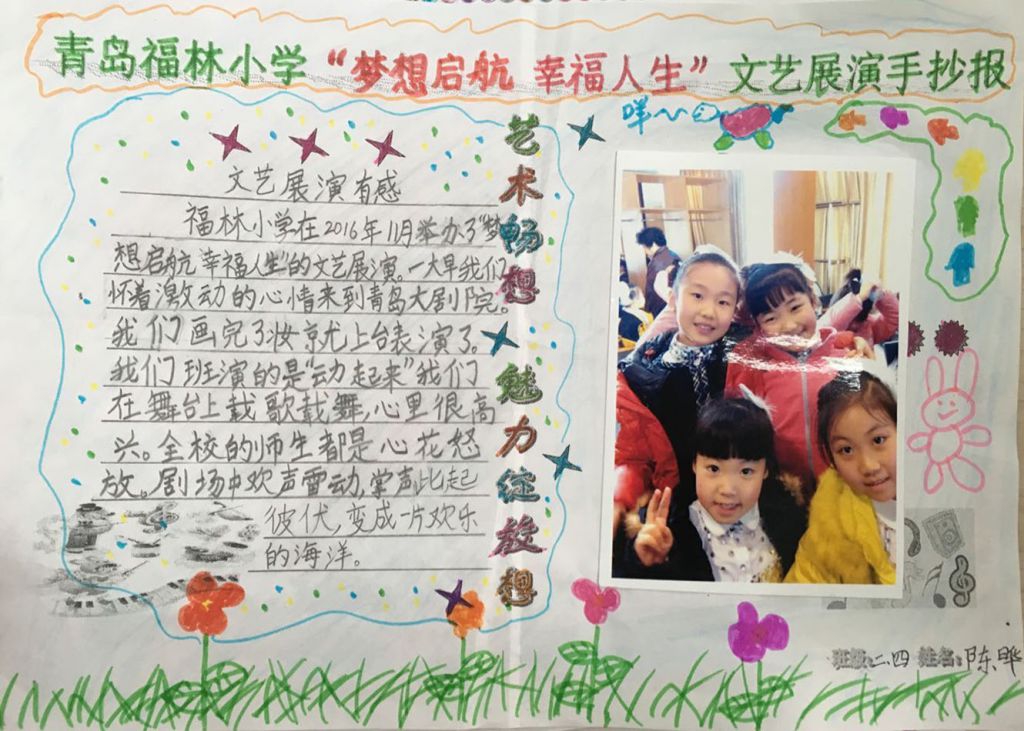 青岛福林小学“梦想启航 幸福人生”文艺展演手抄报
咩
文艺展演有感
福林小学在2016年11月举办了“梦
想启航 幸福人生”的文艺展演。一大早我们
怀着激动的心情来到青岛大剧院。
我们画完了妆就上台表演了。
我们班演的是“动起来”我们
在舞台上载歌载舞,心里很高
兴。全校的师生都是心花怒
放。剧场中欢声雷动,掌声此起
彼伏,变成一片欢乐
的海洋。
艺术畅想 魅力绽放想
班级:二.四 姓名:陈晔